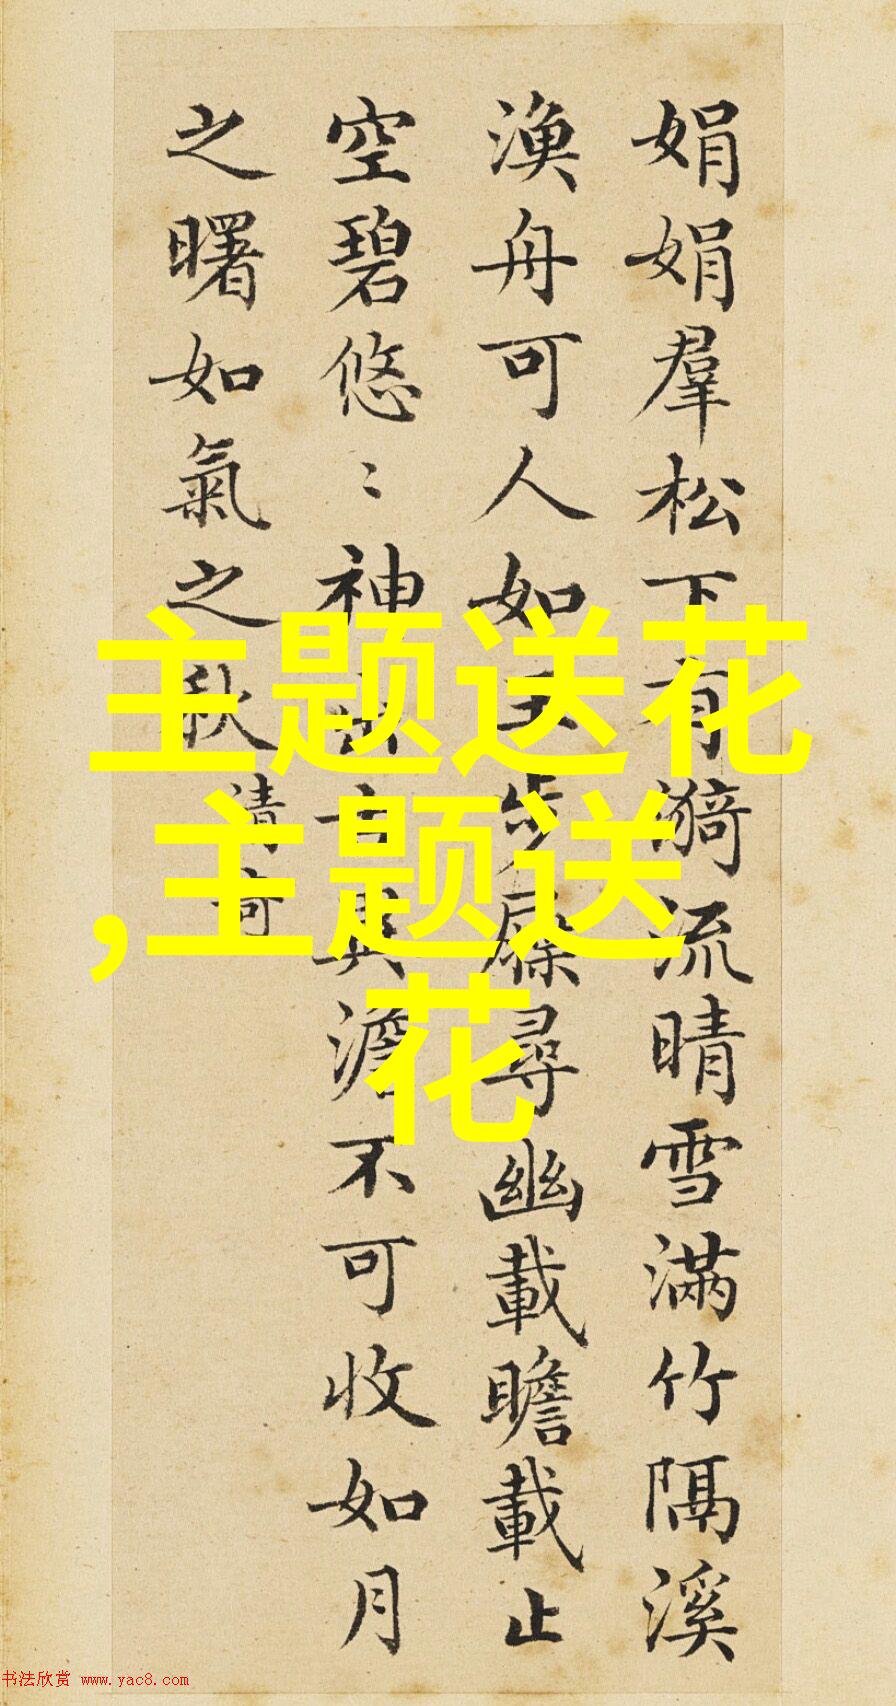 娟娟羣松下有漪流晴雪滿竹隔溪
漁舟可人如玉步屧尋幽載瞻載止
空碧悠〻神出古異澹不可收如月
之曙如氣之秋
清奇
主题送花
,主题送
花
书法欣赏 www.yac8.com